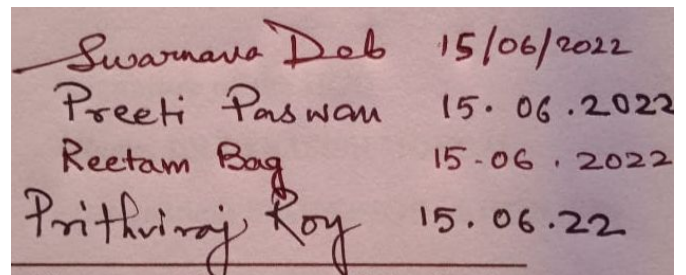 Swarnava Deb 15/06/2022
Preeti Paswan 15.06.2022
Reetam Bag 15-06.2022
Prithviraj Roy 15.06.22